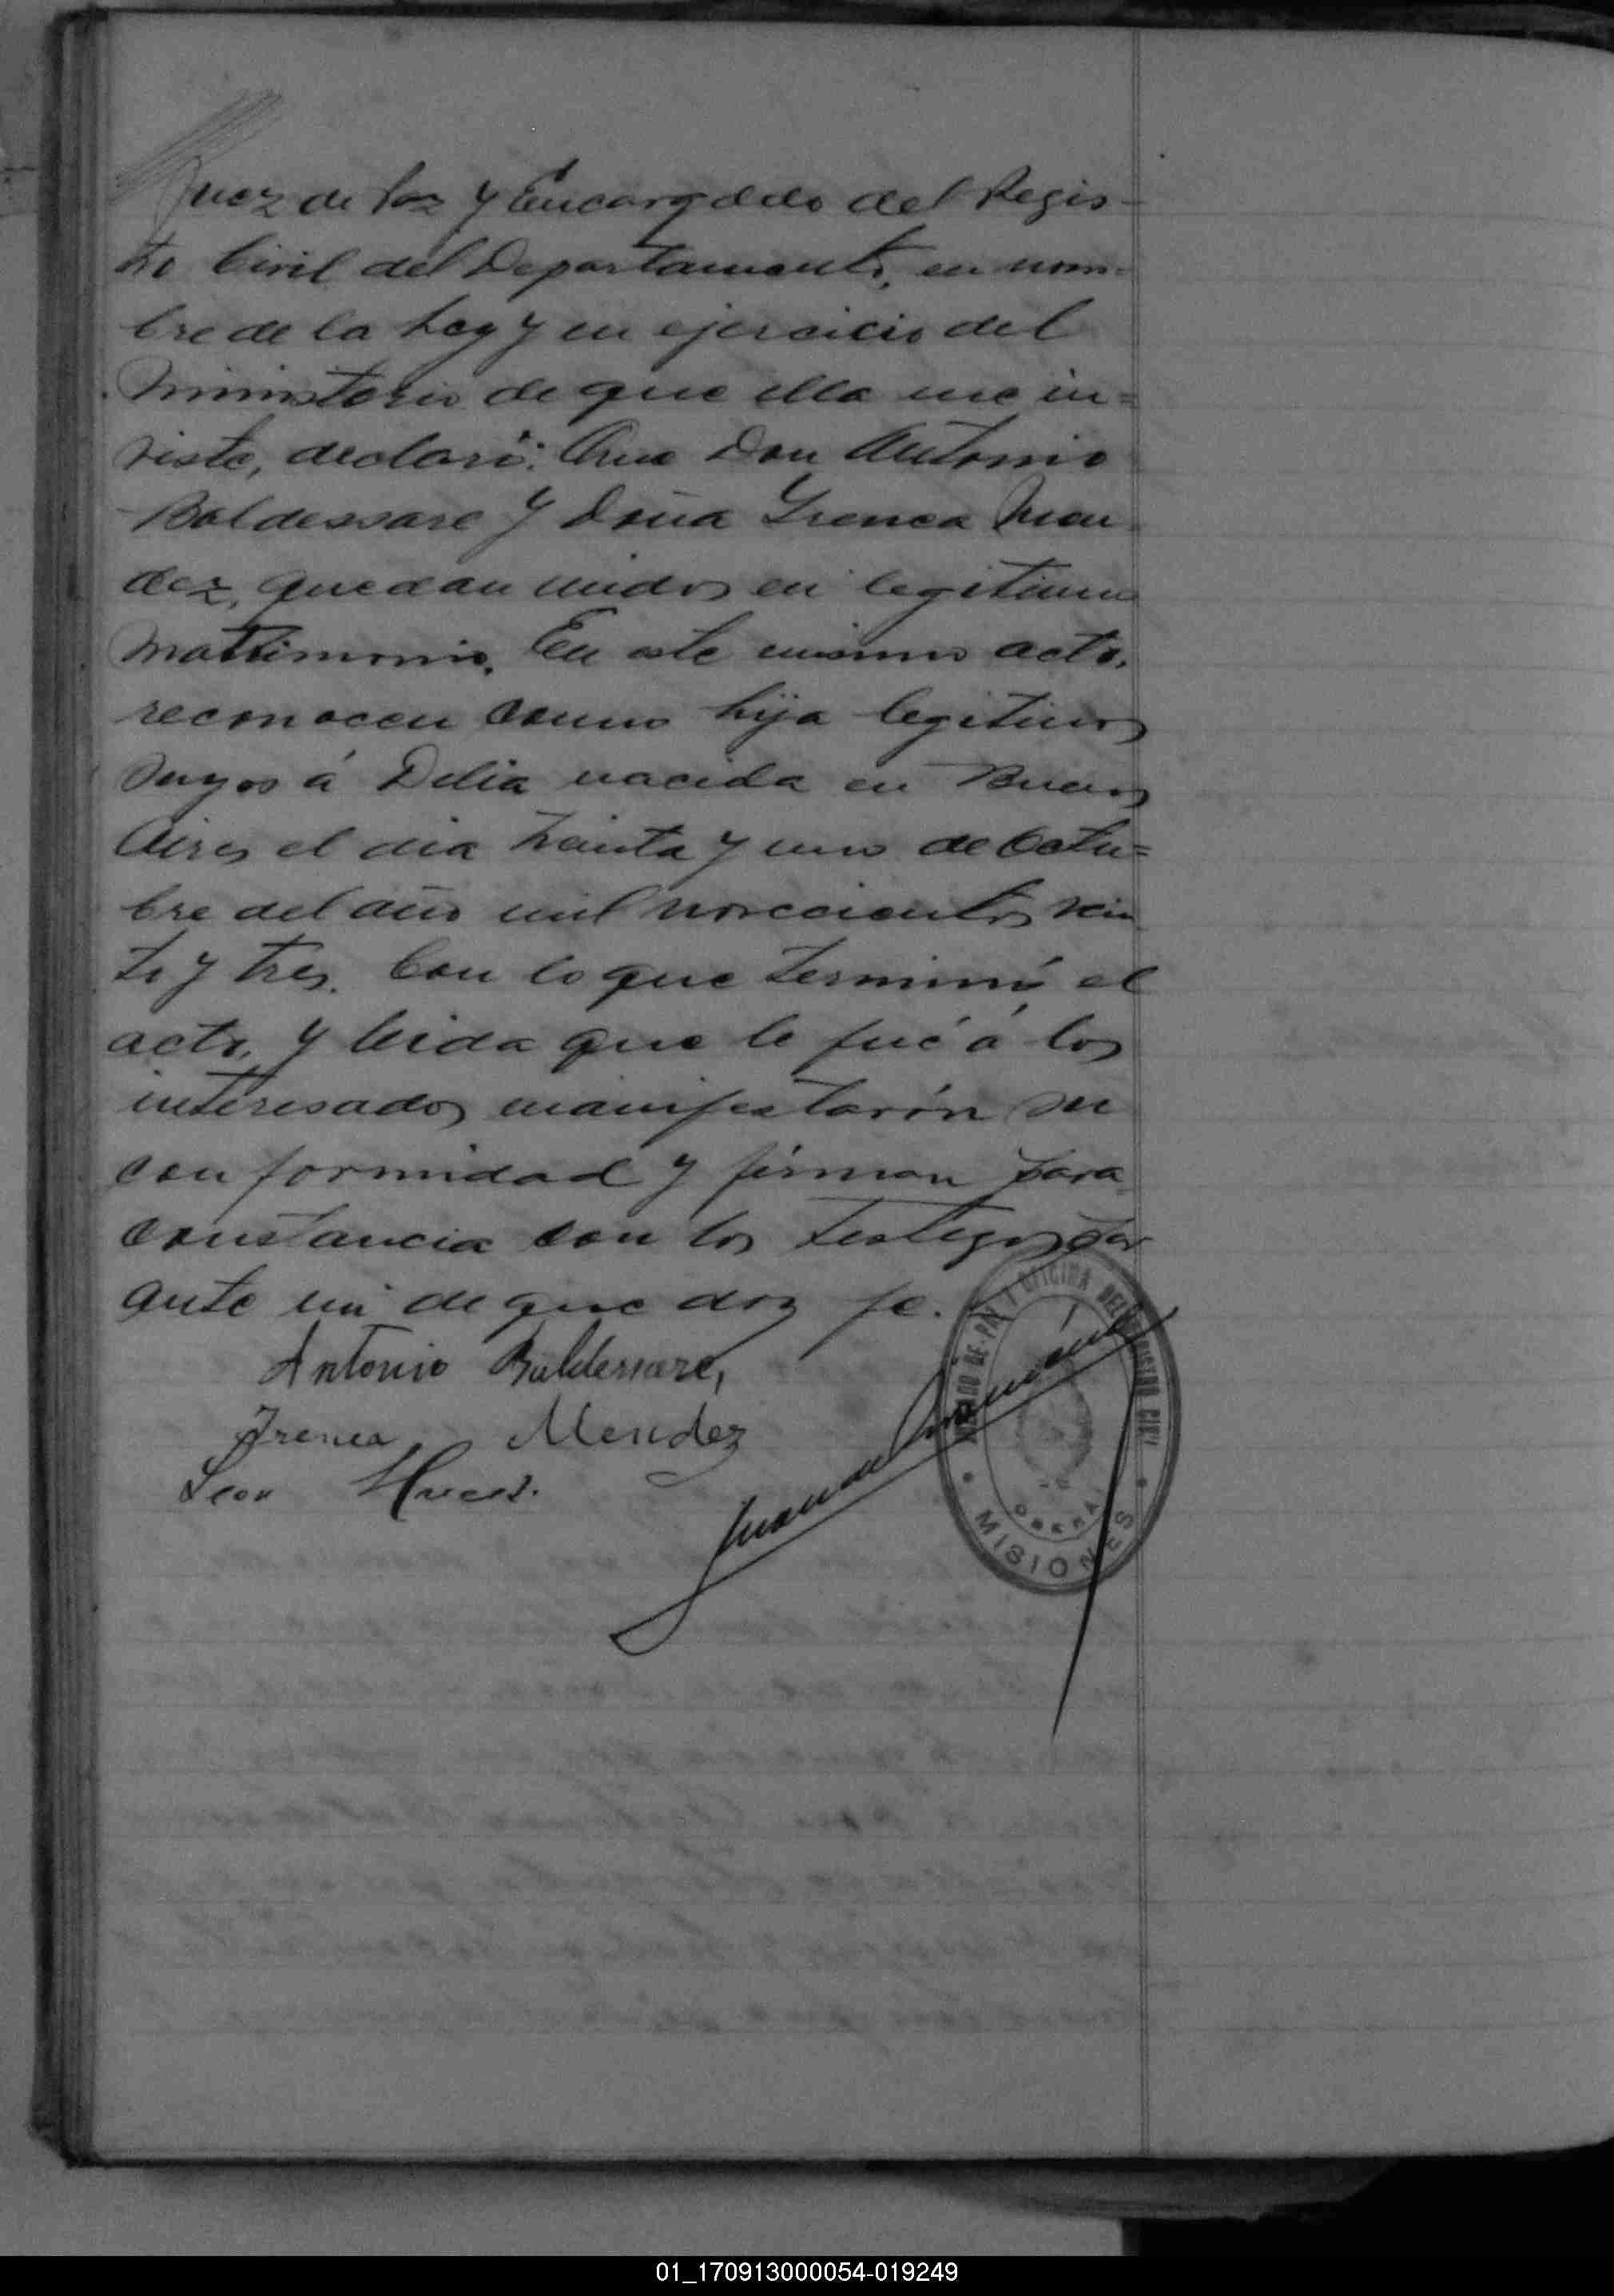 Juez de Paz y Encargdedo del Regis-
tro Civil del Departamento, en nom=
bre de la Ley y en ejercicio del
Ministerio de que ella me in=
viste, declaró: Que Don Antonio
Baldessare y Doña Irenea Men-
dez, quedan unidos en legitimo
matrimonio. En este mismo acto,
reconocen como hija legitimos
suyos á Delia nacida en Buenos
Aires el dia treinta y uno de Octu=
bre del año mil novecientos vein
te y tres. Con lo que terminó el
acto, y leida que le fué á los
interesados manifestarón su
conformidad y firman para
constancia con los testigos por
ante mi de que doy fe.
Antonio Baldessare,
Irenea Mendez
Leon
JUZGADO DE PAZ Y OFICINA DEL REGISTRO CIVIL
OBERA
MISIONES
01_170913000054-019249